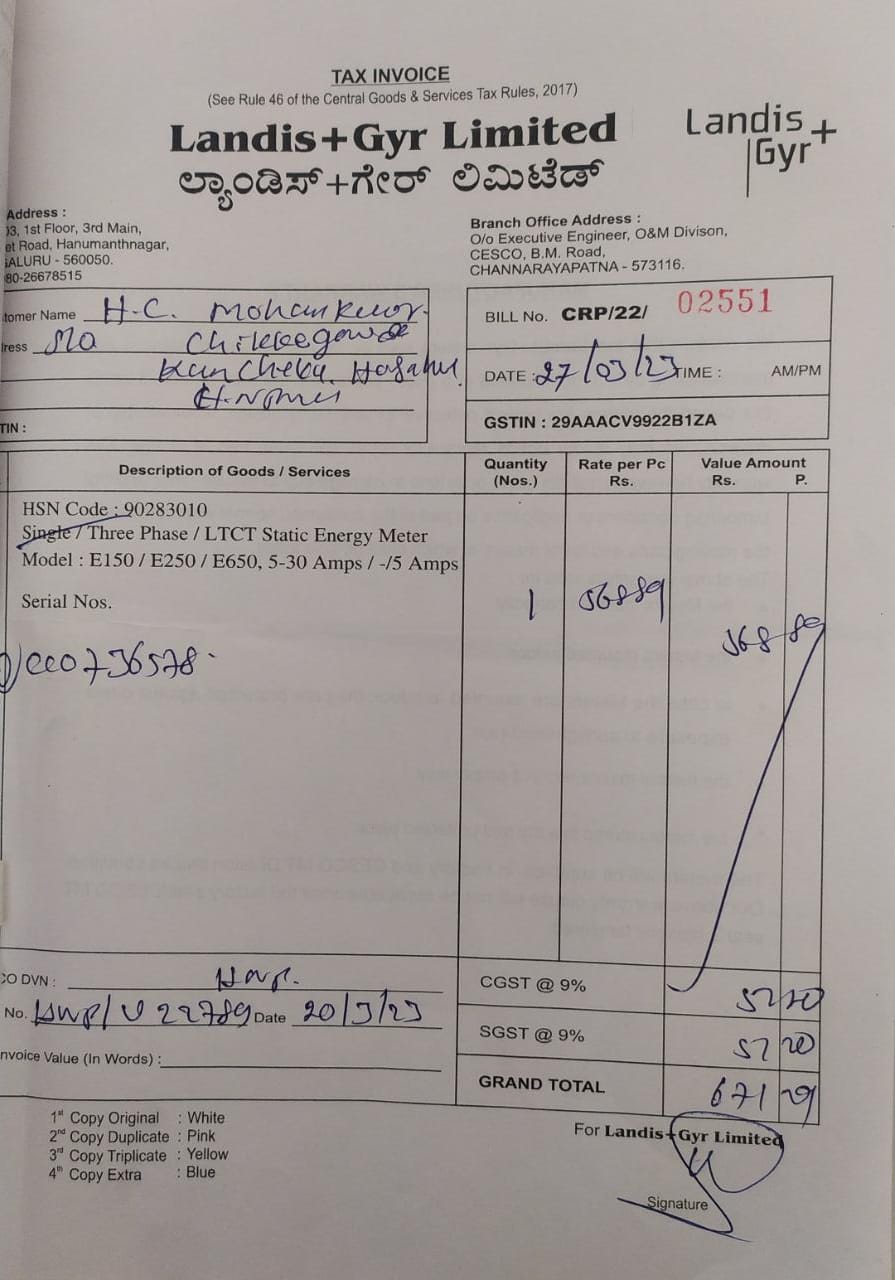 TAX INVOICE
(See Rule 46 of the Central Goods & Services Tax Rules, 2017)
Landis+Gyr Limited
ಲ್ಯಾಂಡಿಸ್+ಗೇರ್ ಲಿಮಿಟೆಡ್
Landis
Gyr+
Address :
03, 1st Floor, 3rd Main,
et Road, Hanumanthnagar,
ALURU - 560050.
80-26678515
Branch Office Address :
O/o Executive Engineer, O&M Divison,
CESCO, B.M. Road,
CHANNARAYAPATNA - 573116.
tomer Name H.C.
ress S/o
Hosahu
BILL No. CRP/22/ 02551
DATE : 27/03/23 TIME : AM/PM
TIN :
GSTIN : 29AAACV9922B1ZA
Description of Goods / Services
Quantity (Nos.)
Rate per Pc Rs.
Value Amount Rs. P.
HSN Code : 90283010
Single / Three Phase / LTCT Static Energy Meter
Model : E150 / E250 / E650, 5-30 Amps / -/5 Amps
Serial Nos.
1 56889
568 89
736578
CO DVN : HNP.
No. HNP/ 22789 Date 20/3/23
nvoice Value (In Words) :
CGST @ 9% 5220
SGST @ 9% 57 20
GRAND TOTAL 671 29
1st Copy Original : White
2nd Copy Duplicate : Pink
3rd Copy Triplicate : Yellow
4th Copy Extra : Blue
For Landis+Gyr Limited
Signature